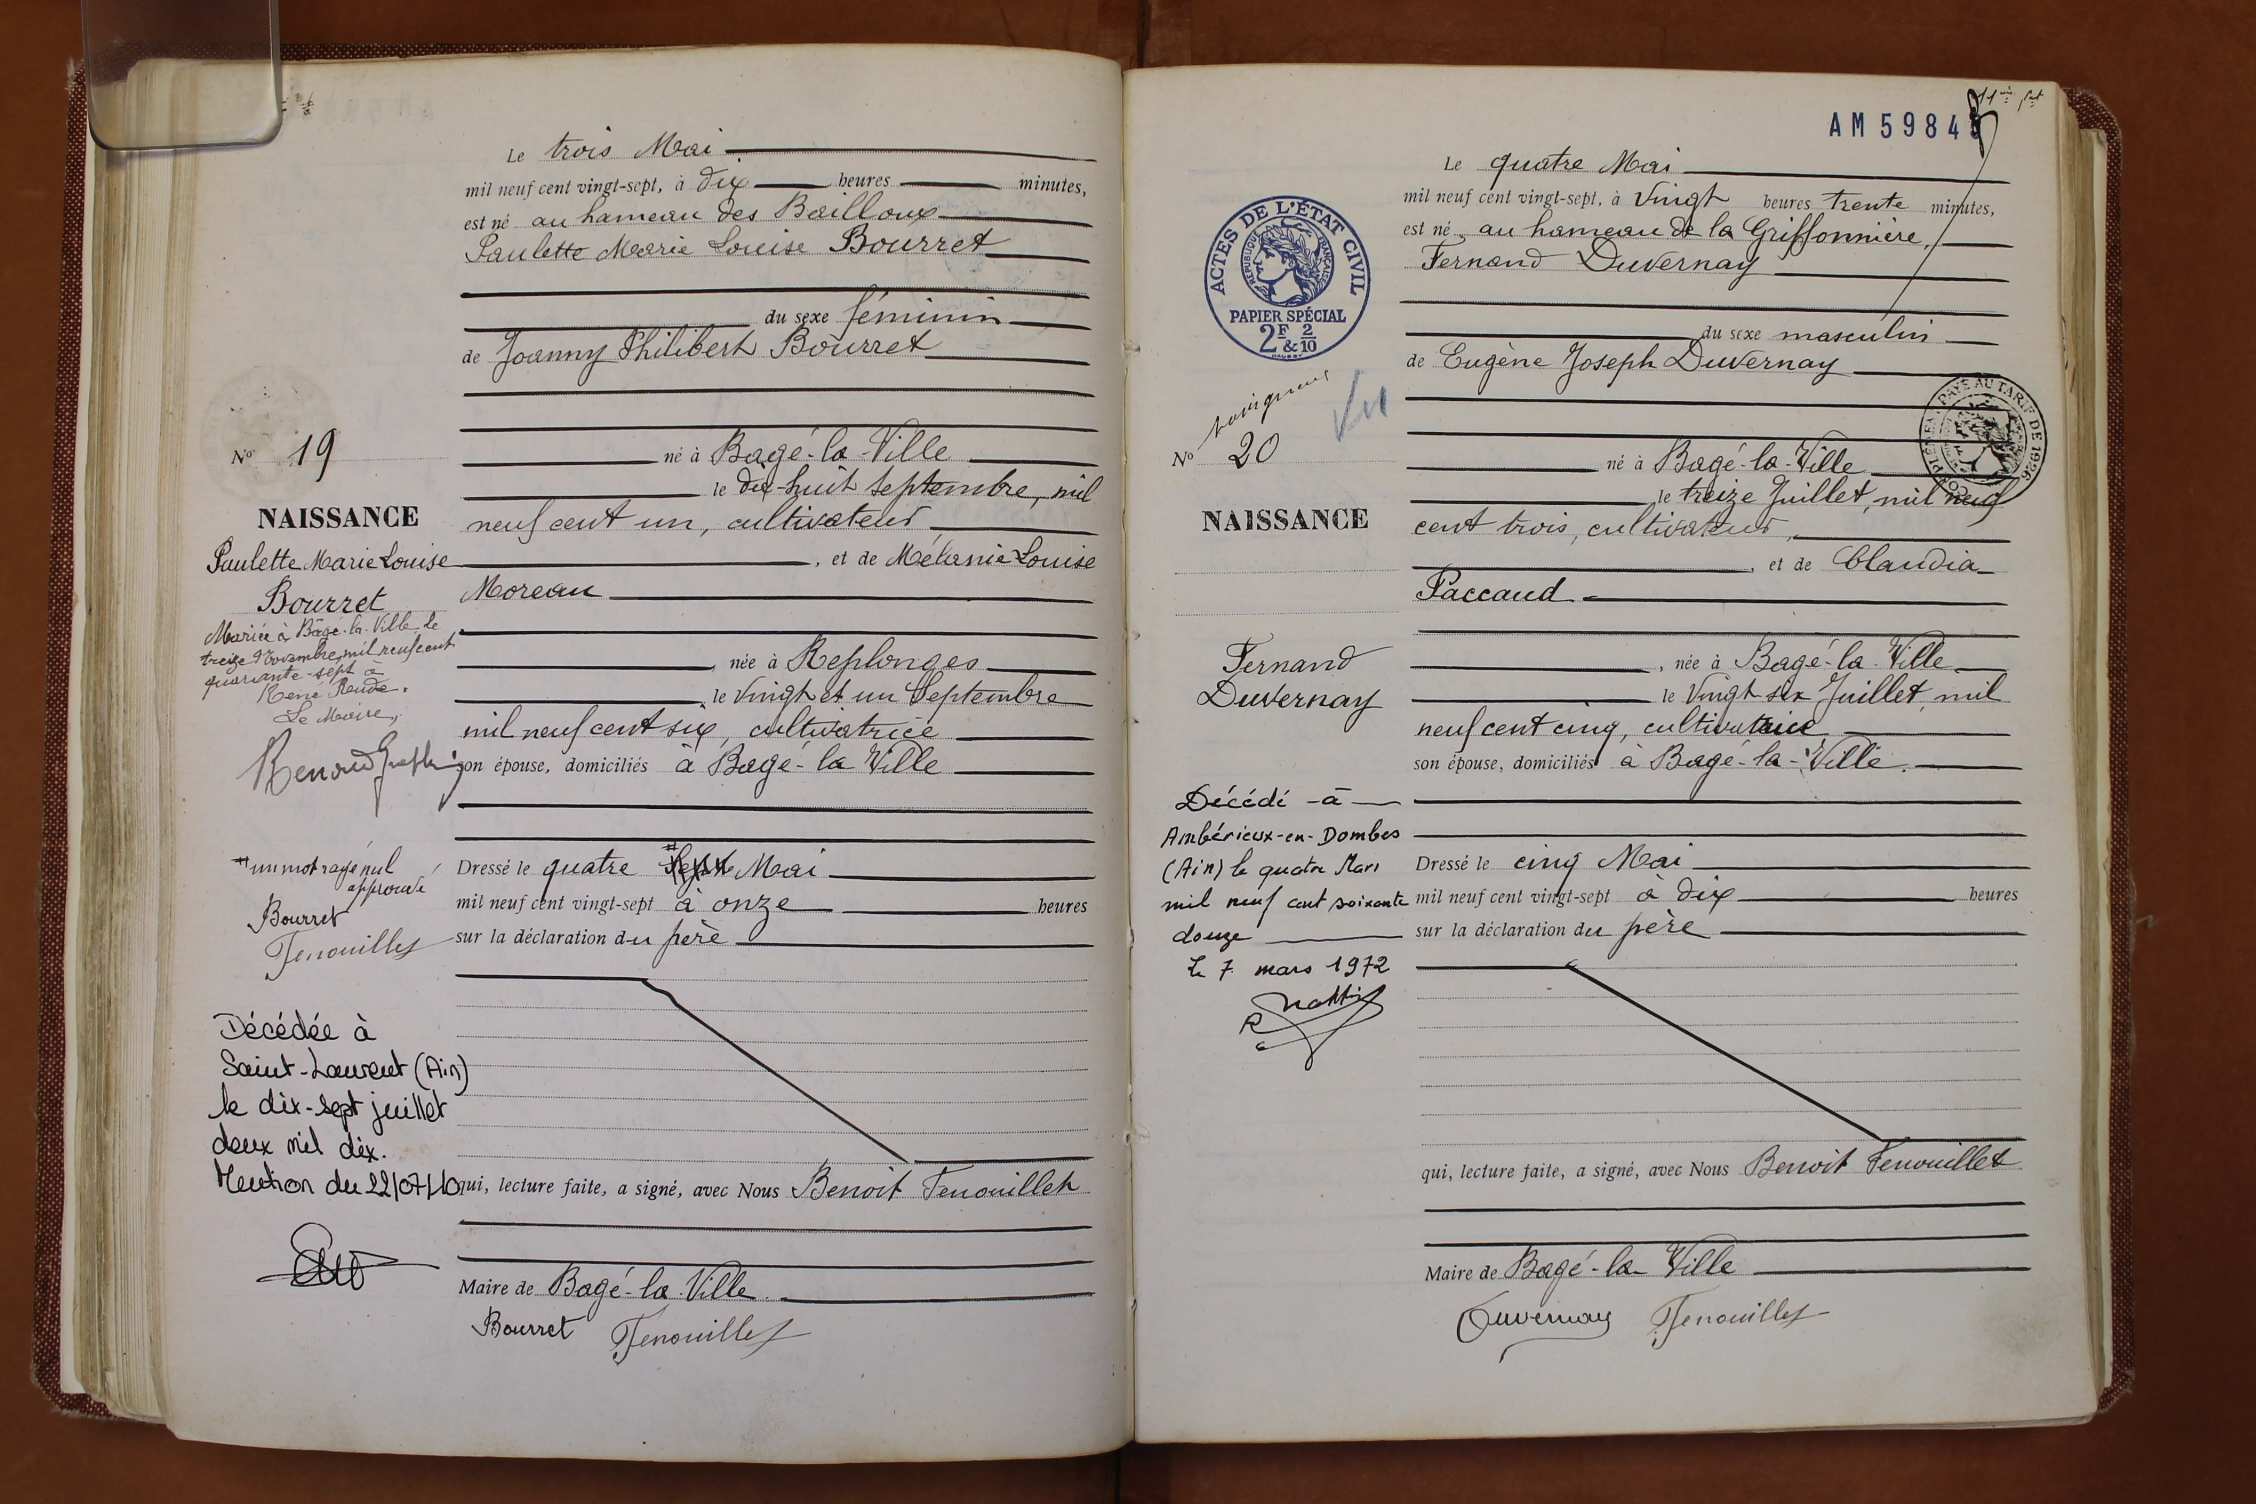 Le trois Mai
mil neuf cent vingt-sept, à dix heures minutes,
est né au hameau des Bailloux
Paulette Marie Louise Bourret
du sexe féminin
de Joanny Philibert Bourret
né à Bagé-la-Ville
le dix-huit Septembre, mil
neuf cent un, cultivateur
, et de Mélanie Louise
Moreau
, née à Replonges
le vingt et un Septembre
mil neuf cent six, cultivatrice
son épouse, domiciliés à Bagé-la-Ville
Dressé le quatre Mai
mil neuf cent vingt-sept à onze heures
sur la déclaration du père
qui, lecture faite, a signé, avec Nous Benoit Fenouillet
Maire de Bagé-la-Ville
Bourret Fenouillet
No 19
NAISSANCE
Paulette Marie Louise
Bourret
Mariée à Bâgé-la-Ville le
treize Novembre mil neuf cent
quarante-sept à
René
Le Maire,
un mot rayé nul
approuvé
Bourret
Fenouillet
Décédée à
Saint-Laurent (Ain)
le dix-sept juillet
deux mil dix.
Mention du 22/07/10
AM 5984
Le quatre Mai
mil neuf cent vingt-sept, à vingt heures trente minutes,
est né au hameau de la Griffonnière,
Fernand Duvernay
du sexe masculin
de Eugène Joseph Duvernay
né à Bagé-la-Ville
le treize Juillet, mil neuf
cent trois, cultivateur,
, et de Claudia
Paccaud
, née à Bagé-la-Ville
le vingt six Juillet, mil
neuf cent cinq, cultivatrice
son épouse, domiciliés à Bagé-la-Ville.
Dressé le cinq Mai
mil neuf cent vingt-sept à dix heures
sur la déclaration du père
qui, lecture faite, a signé, avec Nous Benoit Fenouillet
Maire de Bagé-la-Ville
Duvernay Fenouillet
ACTES DE L'ÉTAT CIVIL
RÉPUBLIQUE FRANÇAISE
PAPIER SPÉCIAL
2F & 2/10
No 20
NAISSANCE
Fernand
Duvernay
Décédé à
Ambérieux-en-Dombes
(Ain) le quatre Mars
mil neuf cent soixante
douze
Le 7 mars 1972
COMPLÉMENT PAYÉ AU TARIF DE 1926